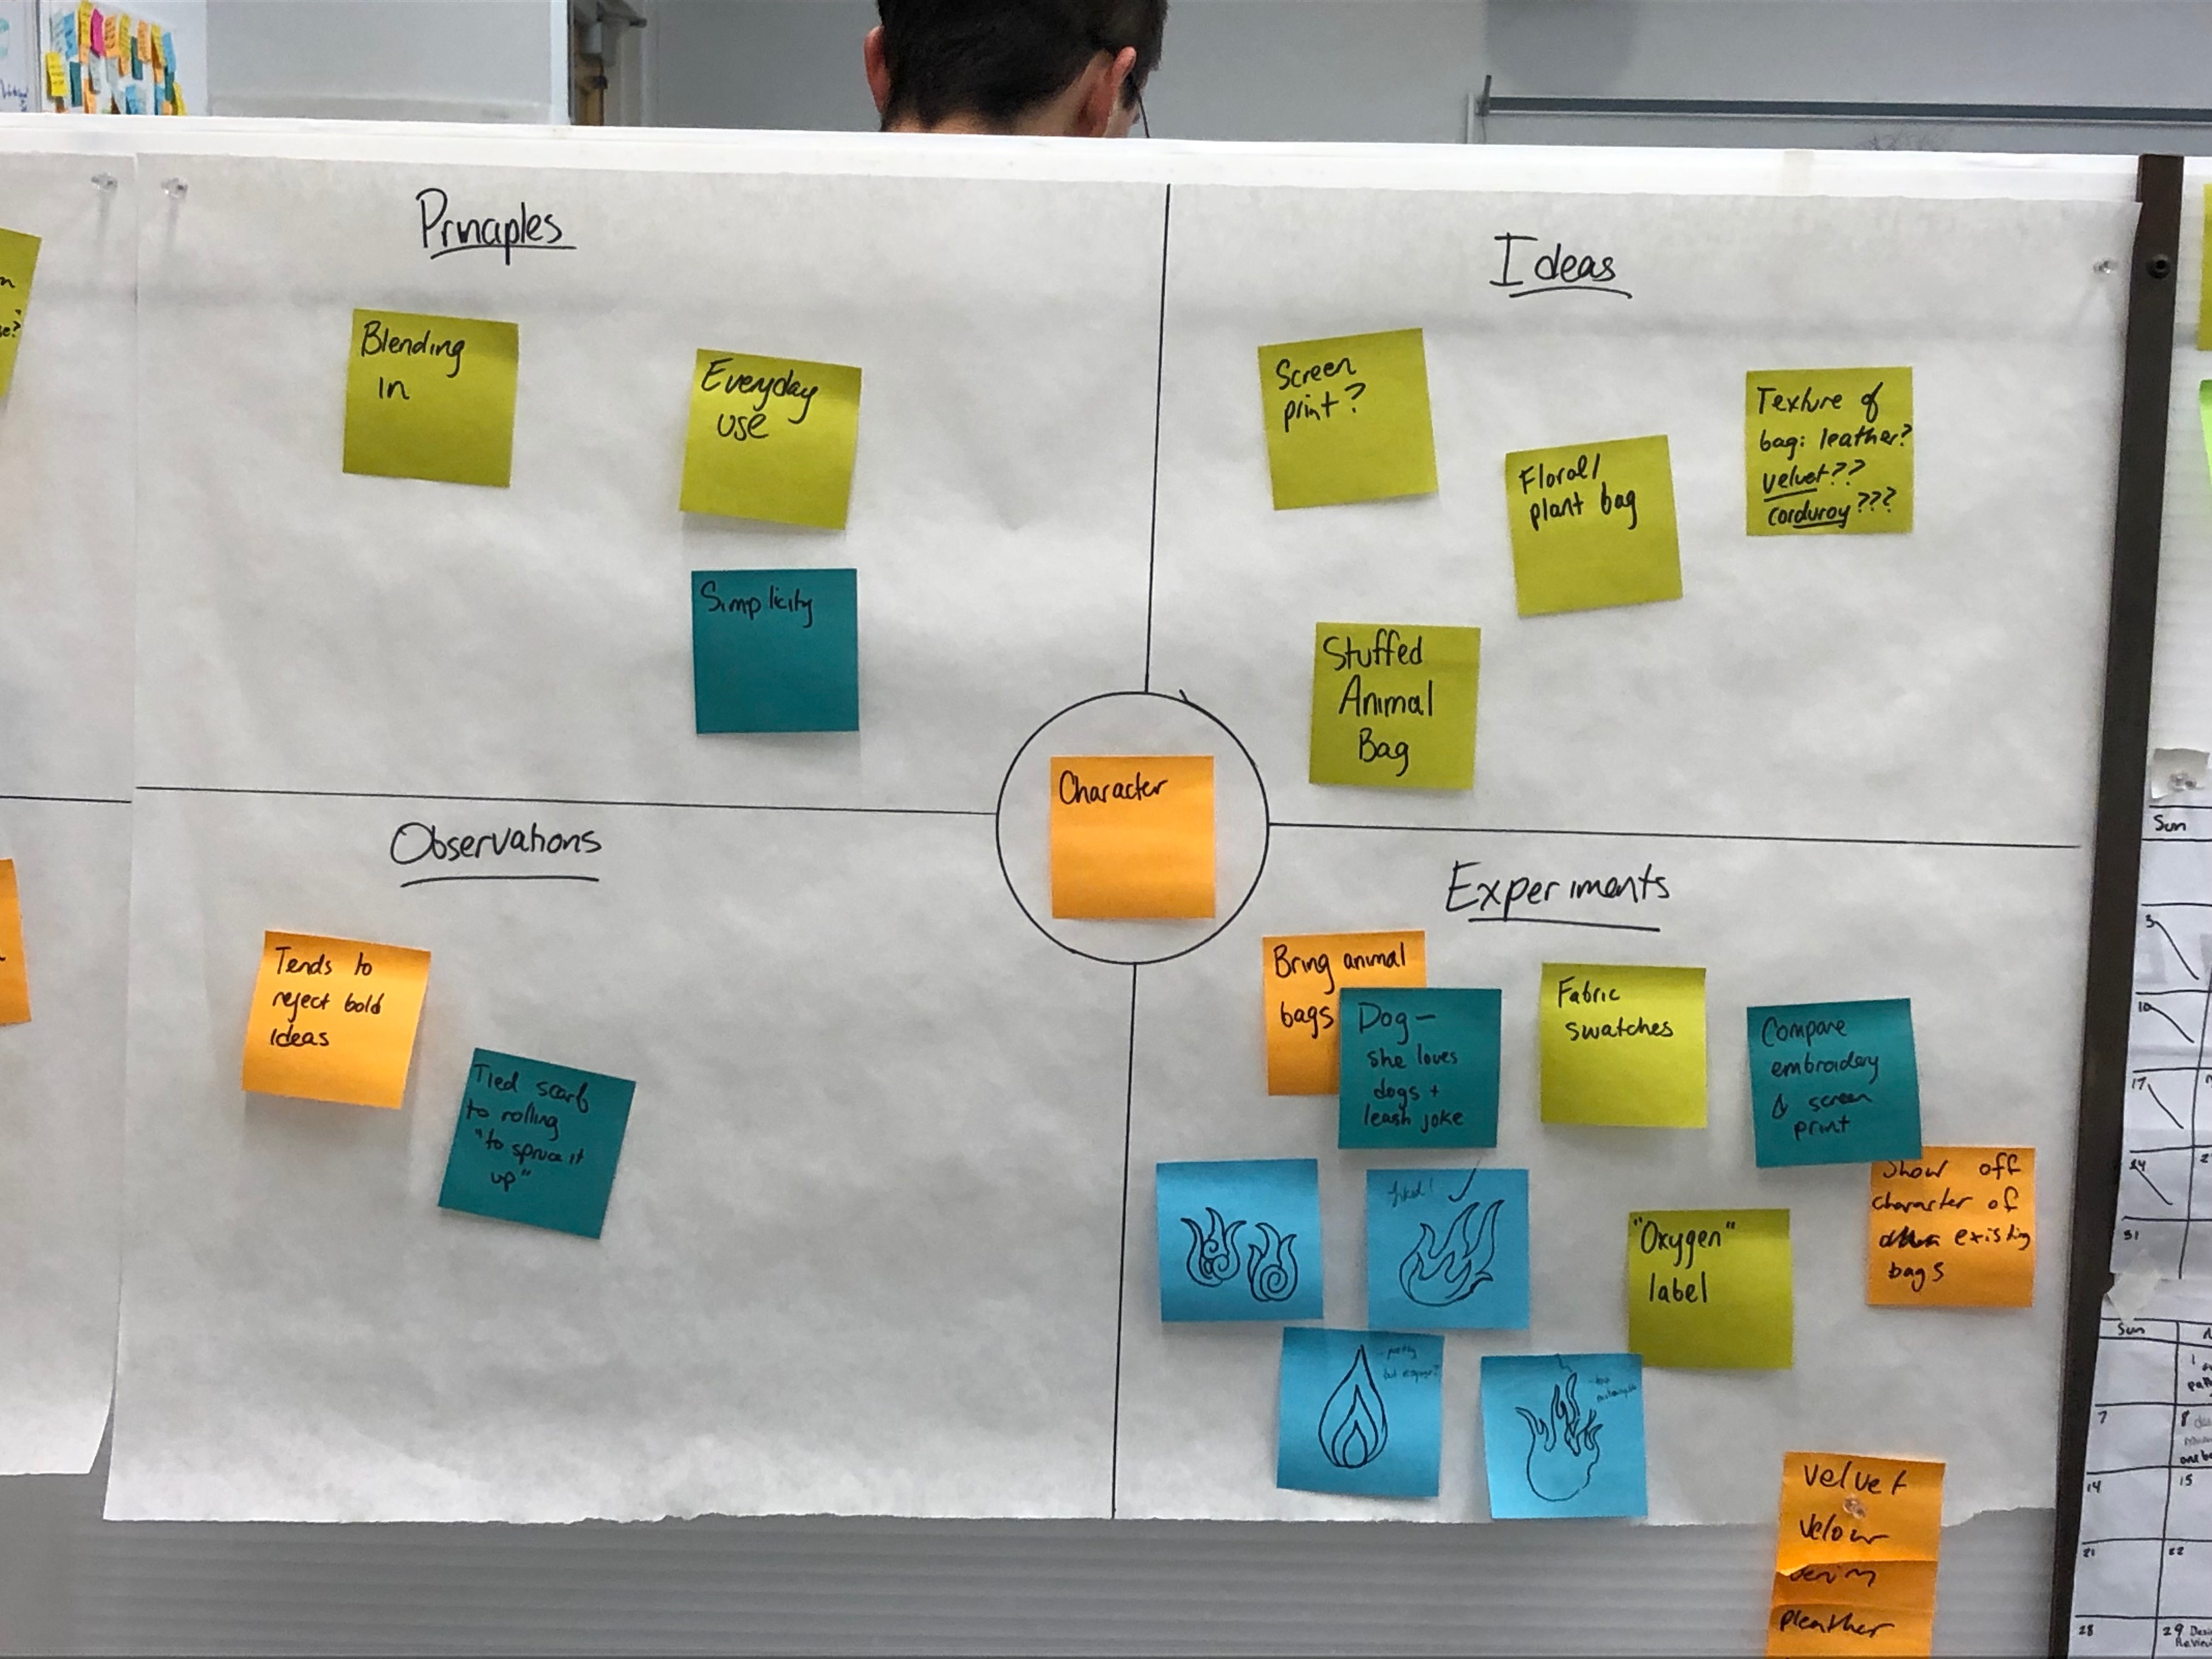 Principles
Blending
in
Everyday
use
Simplicity
Ideas
Screen
print?
Floral/
plant bag
Texture of
bag: leather?
velvet??
corduroy???
Stuffed
Animal
Bag
Character
Observations
Tends to
reject bold
ideas
Tied scarf
to rolling
"to spruce it
up"
Experiments
Bring animal
bags
Dog -
she loves
dogs +
leash joke
Fabric
swatches
Compare
embroidery
& screen
print
Show off
character of
existing
bags
liked!
- pretty
"Oxygen"
label
velvet
velour
denim
pleather
se?
Sun
3
10
17
24
31
Sun
1
7
8
14
15
21
22
28
29